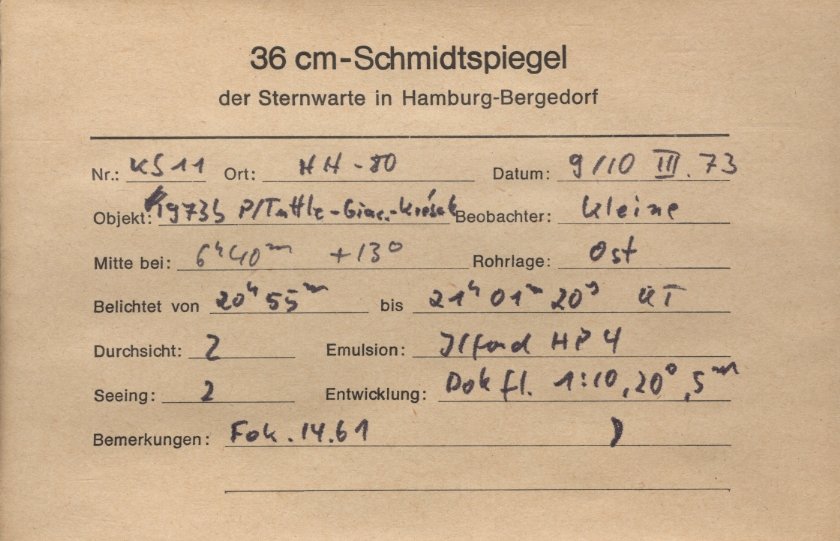 36 cm-Schmidtspiegel
der Sternwarte in Hamburg-Bergedorf
Nr.: KS 11 Ort: HH-80 Datum: 9/10 III. 73
Objekt: 1973b P/Tuttle-Giac.-Kresák Beobachter: Kleine
Mitte bei: 6h 40m +13° Rohrlage: Ost
Belichtet von 20h 55m bis 21h 01m 20s UT
Durchsicht: 2 Emulsion: Ilford HP 4
Seeing: 2 Entwicklung: Dokfl. 1:10, 20°, 5m
Bemerkungen: Fok. 14.61